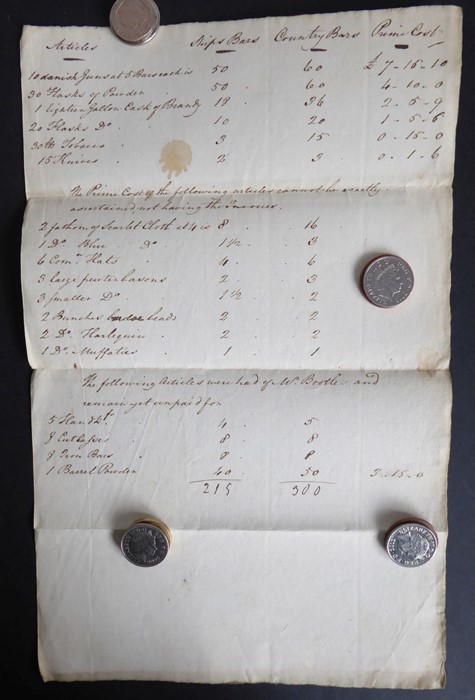 Articles Ships Bars Country Bars Prime Cost
10 danish Guns at 5 Bars each is 50 60 £ 7-15-10
30 flasks of Powder 50 60 4-10-0
1 Eighteen Gallon Cask of Brandy 18 36 2-5-9
20 Flasks Do. 10 20 1-5-6
30 lb Tobacco 3 15 0-15-0
15 Knives 2 3 0-1-6
The Prime Cost of the following articles cannot be exactly
ascertained not having the Invoices.
2 fathom of Scarlet Cloth at 4 is 8 16
1 Do. Blue Do 1½ 3
6 Comn. Hats 4 6
3 large pewter basons 2 3
3 smaller Do 1½ 2
2 Bunches beads 2 2
2 Do. Harlequin 2 2
1 Do. Muffaties 1 1
The following Articles were had of Mr. Bootle and
remain yet unpaid for
5 4 5
8 Cutlasses 8 8
8 Iron Bars 8 8
1 Barrel Powder 40 50 3-15-0
215 300